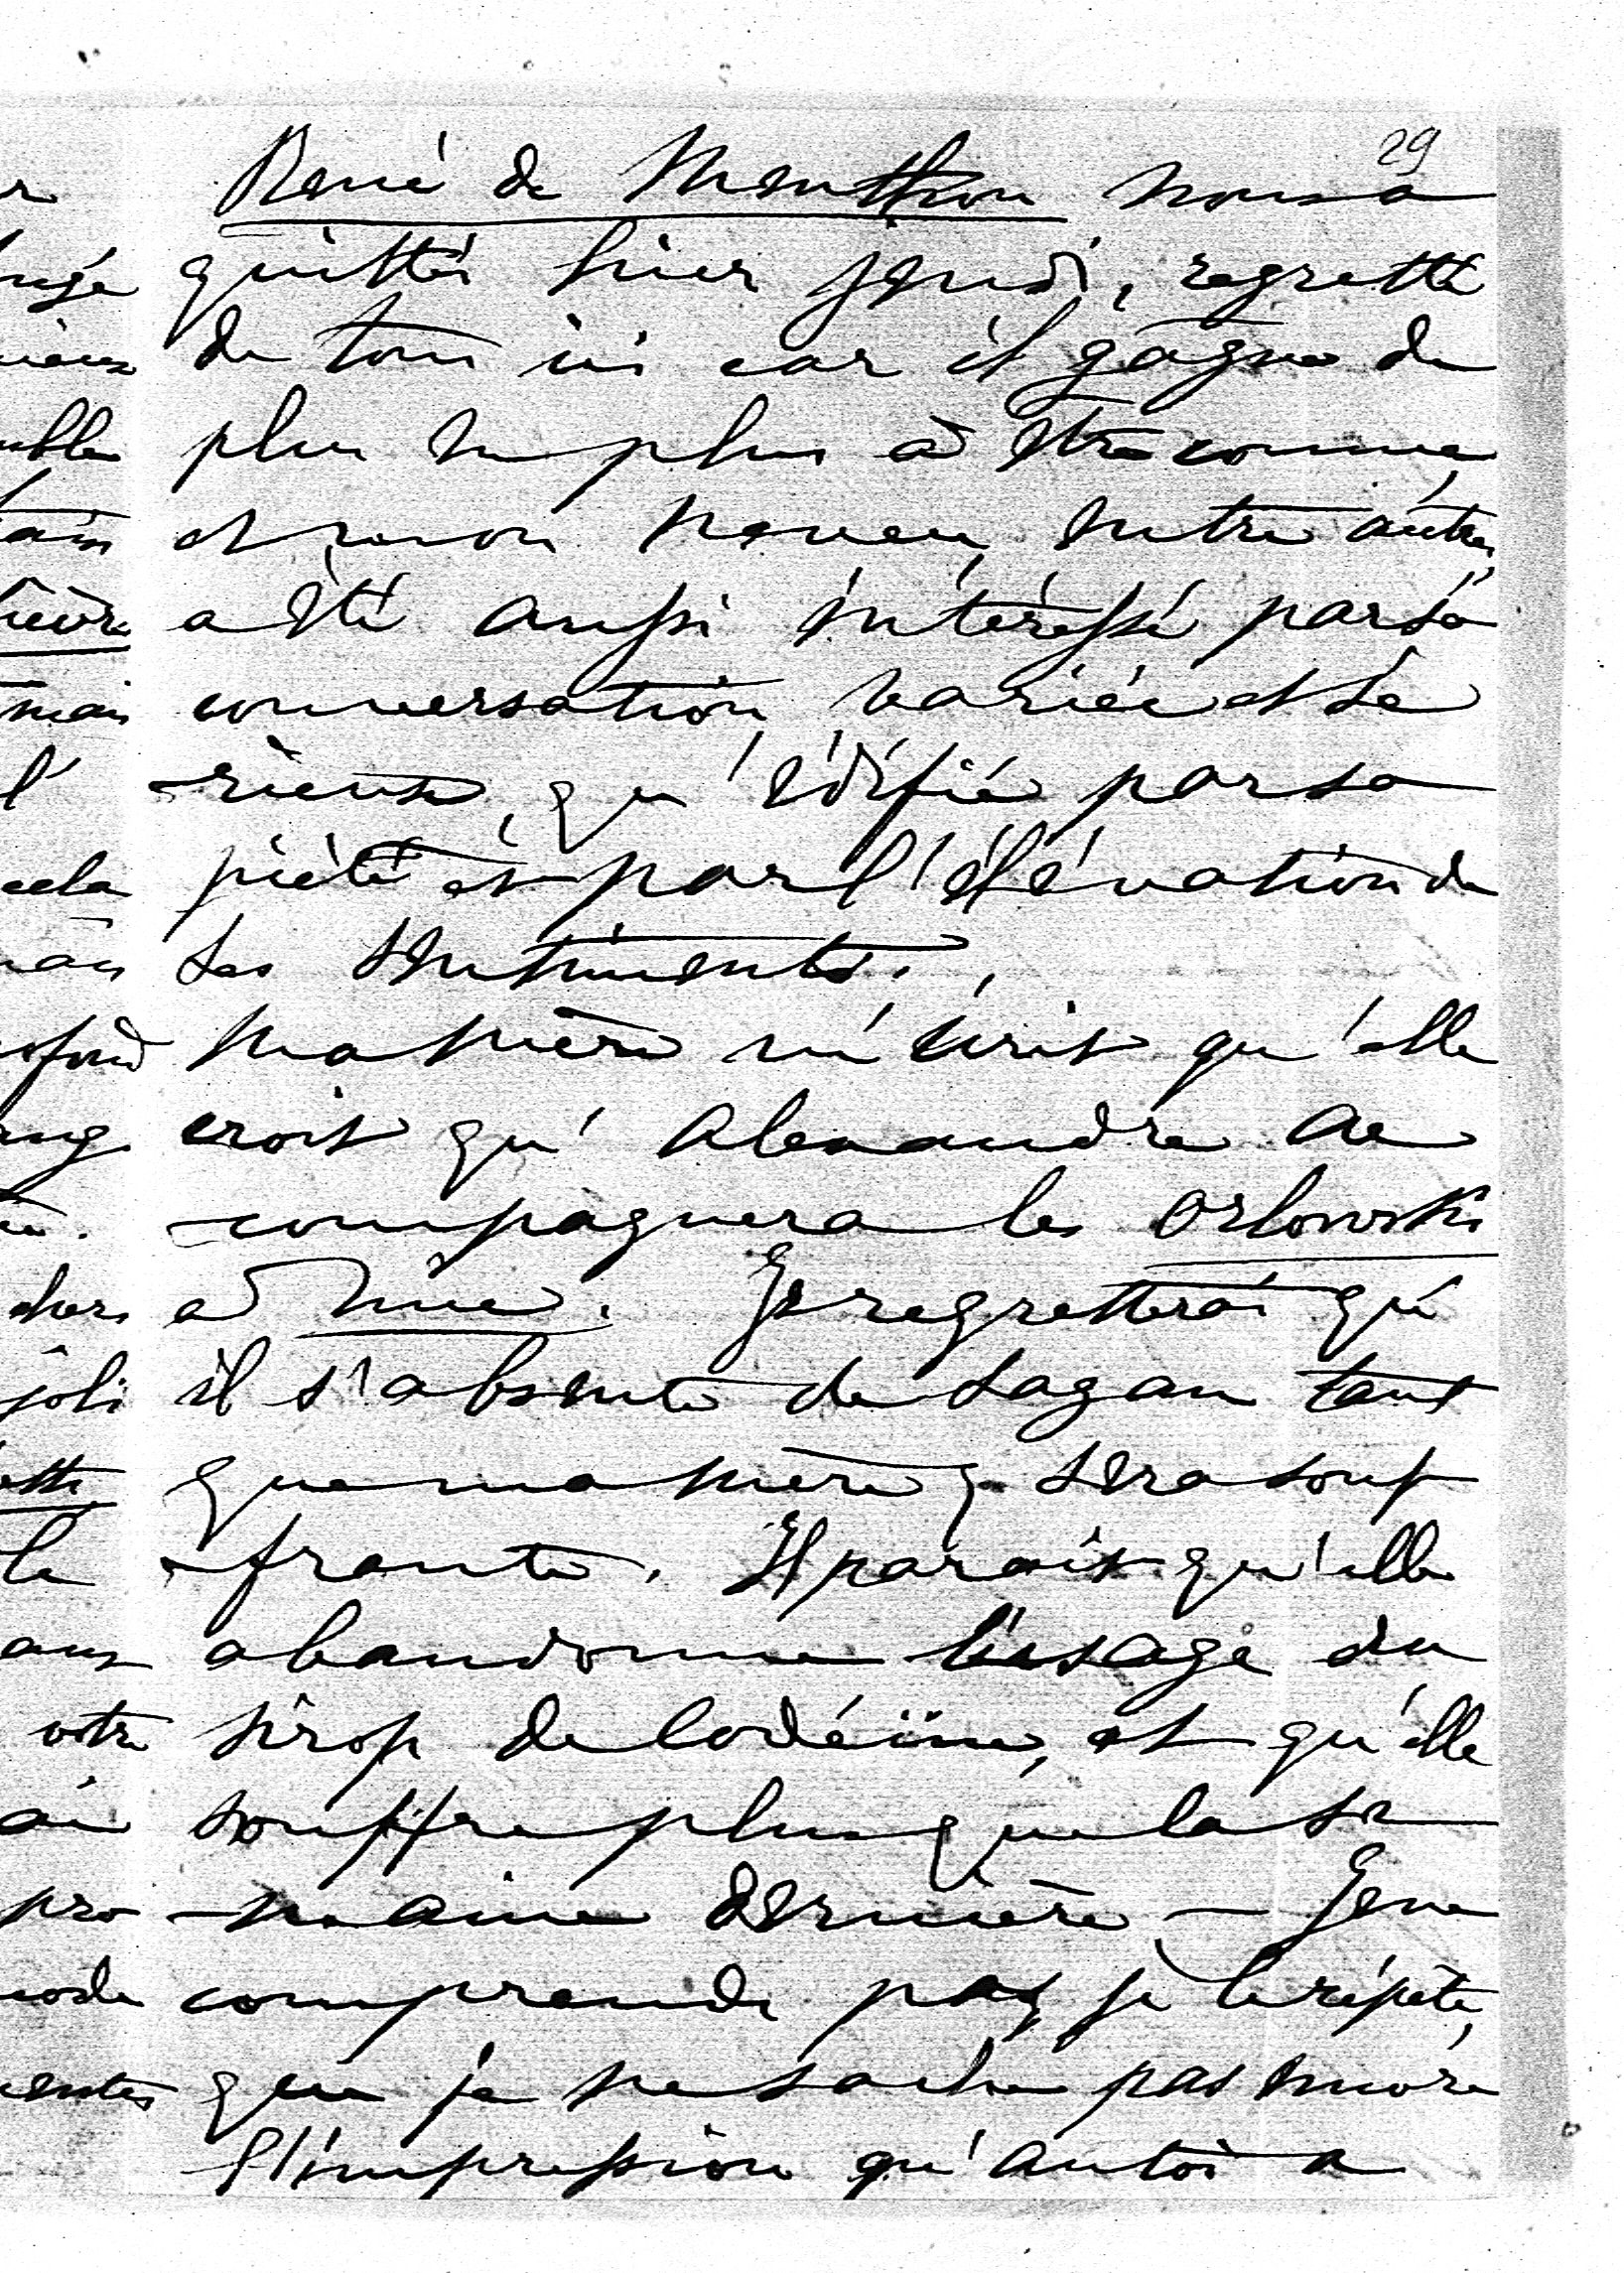 29
René de Menthon nous a
quittés hier jeudi, regretté
de tous ici car il gagne de
plus en plus à être connu,
et mon neveu, entre autres,
a été aussi intéressé par sa
conversation variée et sé
-rieuse, qu'édifié par sa
piété et par l'élévation de
ses sentiments.
Ma mère m'écrit qu'elle
croit qu'Alexandre ac
-compagnera les Orlowski
à Nice. Je regretterai qu'
il s'absente de Sagan tant
que ma mère y sera souf
-frante. Il parait qu'elle
abandonne l'usage du
sirop de Codéïne, et qu'elle
souffre plus que la se
-maine dernière - Je ne
comprends pas, je le répète,
que je ne sache pas encore
l'impression qu'a